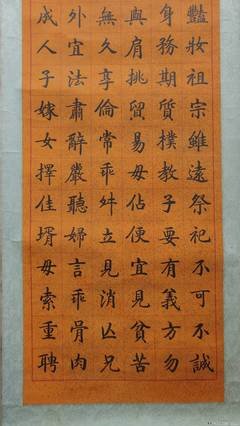 豔妝祖宗雖遠祭祀不可不誠
身務期質樸教子要有義方勿
與肩挑貿易毋佔便宜見貧苦
無久享倫常乖舛立見消亾兄
外宜法肅辭嚴聽婦言乖骨肉
成人子嫁女擇佳壻毋索重聘